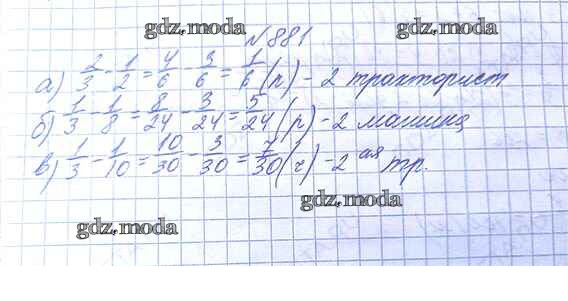 gdz.moda gdz.moda
№881
а) 2/3 - 1/2 = 4/6 - 3/6 = 1/6 (п) - 2 тракторист
б) 1/3 - 1/8 = 8/24 - 3/24 = 5/24 (р) - 2 машина
в) 1/3 - 1/10 = 10/30 - 3/30 = 7/30 (ч) - 2 ая тр.
gdz.moda
gdz.moda